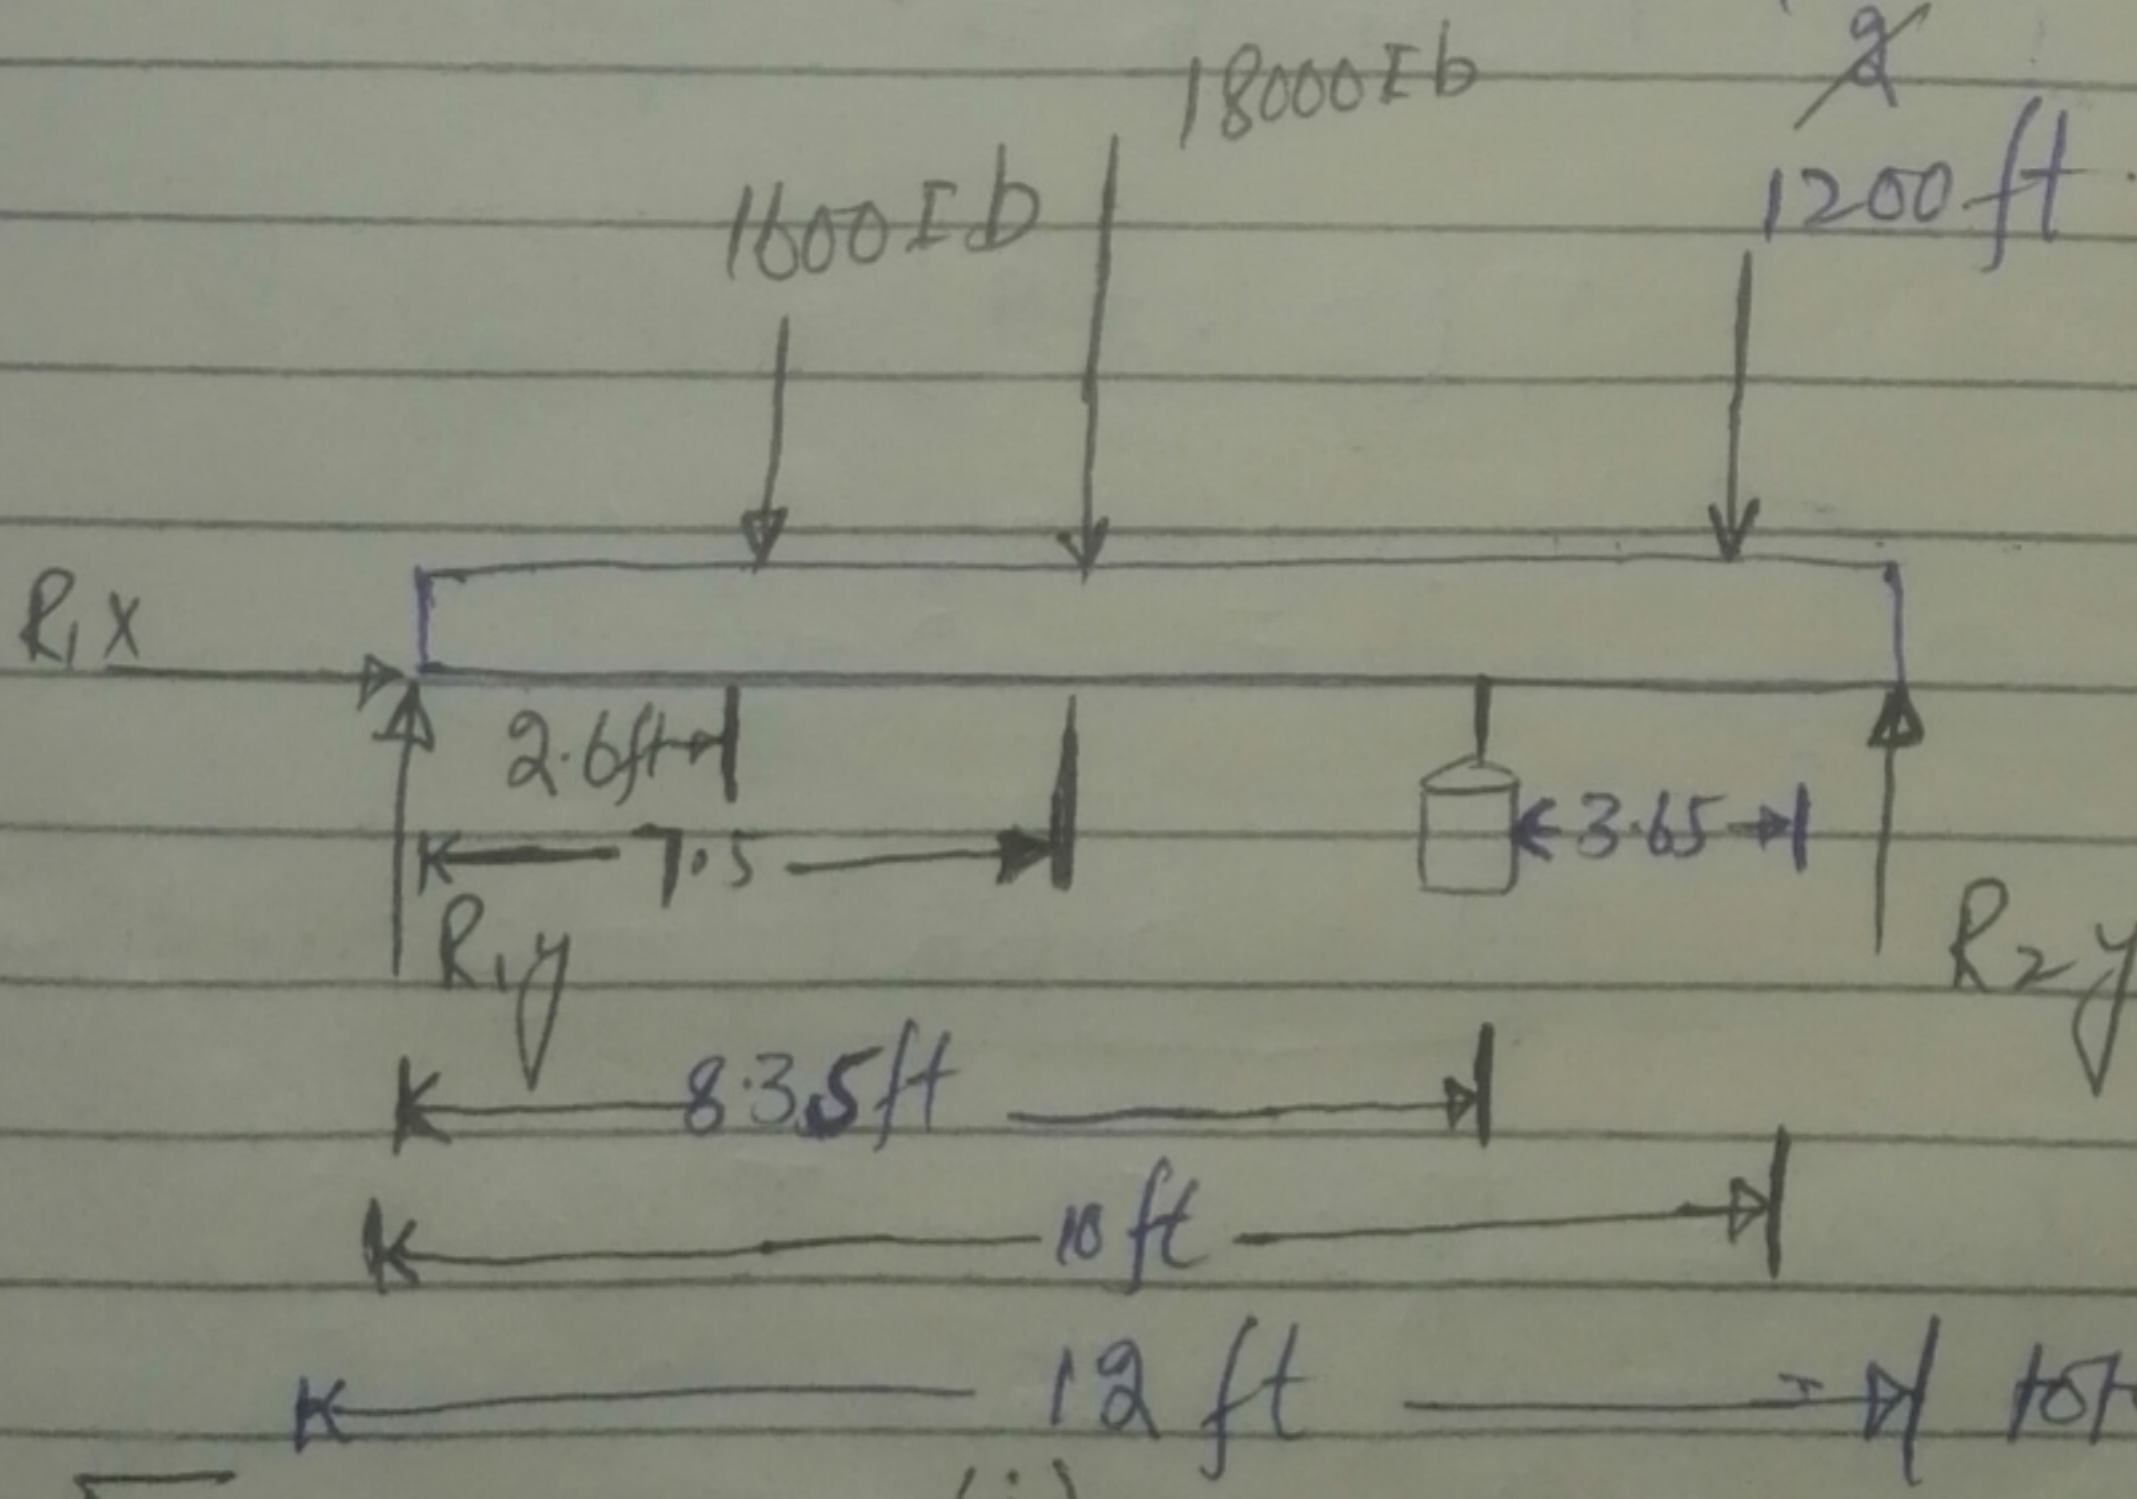 18000Ib
1600Ib
1200ft
R1x
2.6ft
7.5
3.65
R1y
R2y
8.35ft
10ft
12ft
(i)